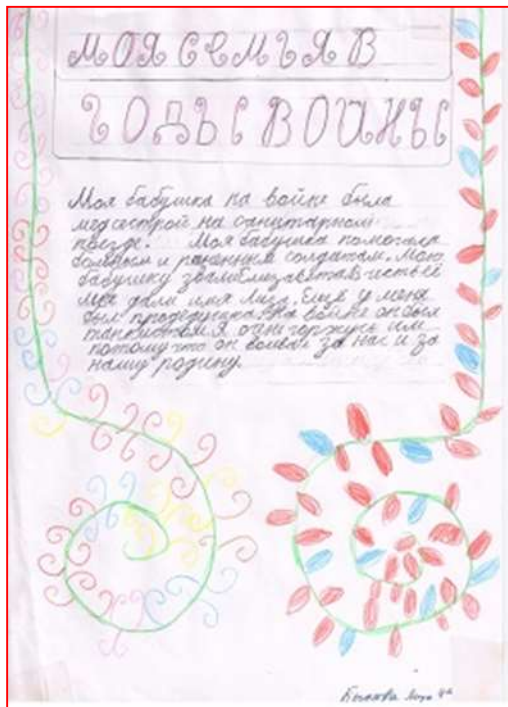 МОЯ СЕМЬЯ В
ГОДЫ ВОЙНЫ
Моя бабушка на войне была
медсестрой на санитарном
поезде. Моя бабушка помогала
больным и раненым солдатам. Мою
бабушку звали Елизавета. В честь её
мне дали имя Лиза. Ещё у меня
был прадедушка. На войне он был
танкистом. Я очень горжусь им
потому что он воевал за нас и за
нашу родину.
Быкова Лиза